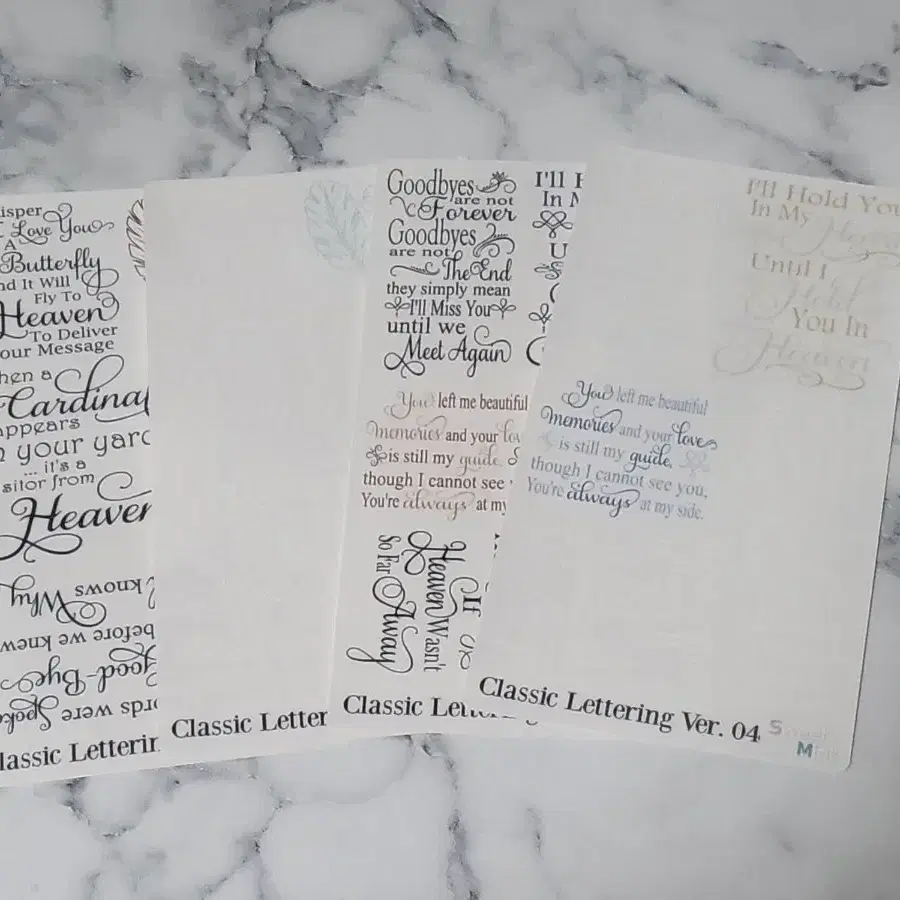 isper
I Love You
A
Butterfly
nd It Will
Fly To
Heaven
To Deliver
our Message
hen a
Cardinal
appears
n your yard
... it's a
sitor from
Heaven
knows Why
before we knew
Good-Bye
rds were Spoke
lassic Letterin
Classic Letter
Goodbyes
are not
Forever
Goodbyes
are not
The End
they simply mean
I'll Miss You
until we
Meet Again
You left me beautiful
Memories and your lov
is still my guide,
though I cannot see
You're always at my
So Far Away
Heaven Wasn't
If
Classic Let
I'll H
In M
U
I'll Hold You
In My Heart
Until I
Hold
You In
Heaven
You left me beautiful
Memories and your love
is still my guide,
though I cannot see you,
You're always at my side.
Classic Lettering Ver. 04
S
M